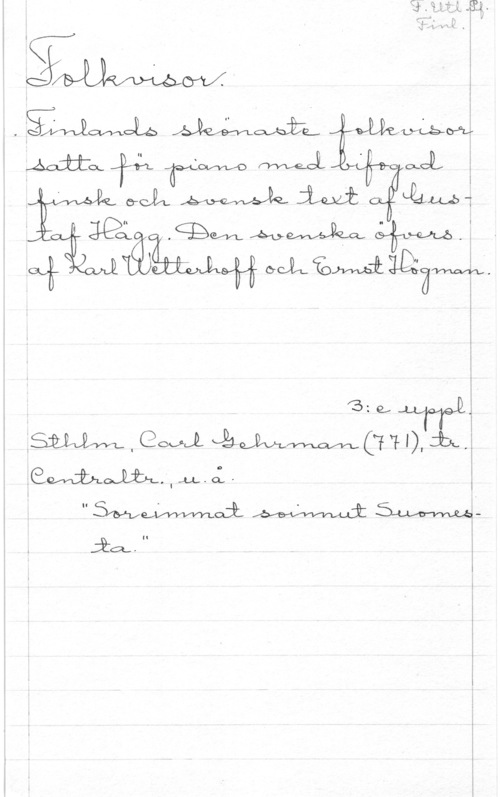 F. Utl. Pf.
Finl.
Folkvisor.
Finlands skönaste folkvisor
satta för piano med bifogad
finsk och svensk text af Gus-
taf Hägg. Den svenska öfvers.
af Karl Wetterhoff och Ernst Högman.
3:e uppl.
Sthlm, Carl Gehrman (771), tr.
Centraltr., u. å.
"Soreimmat soinnut Suomes-
ta."